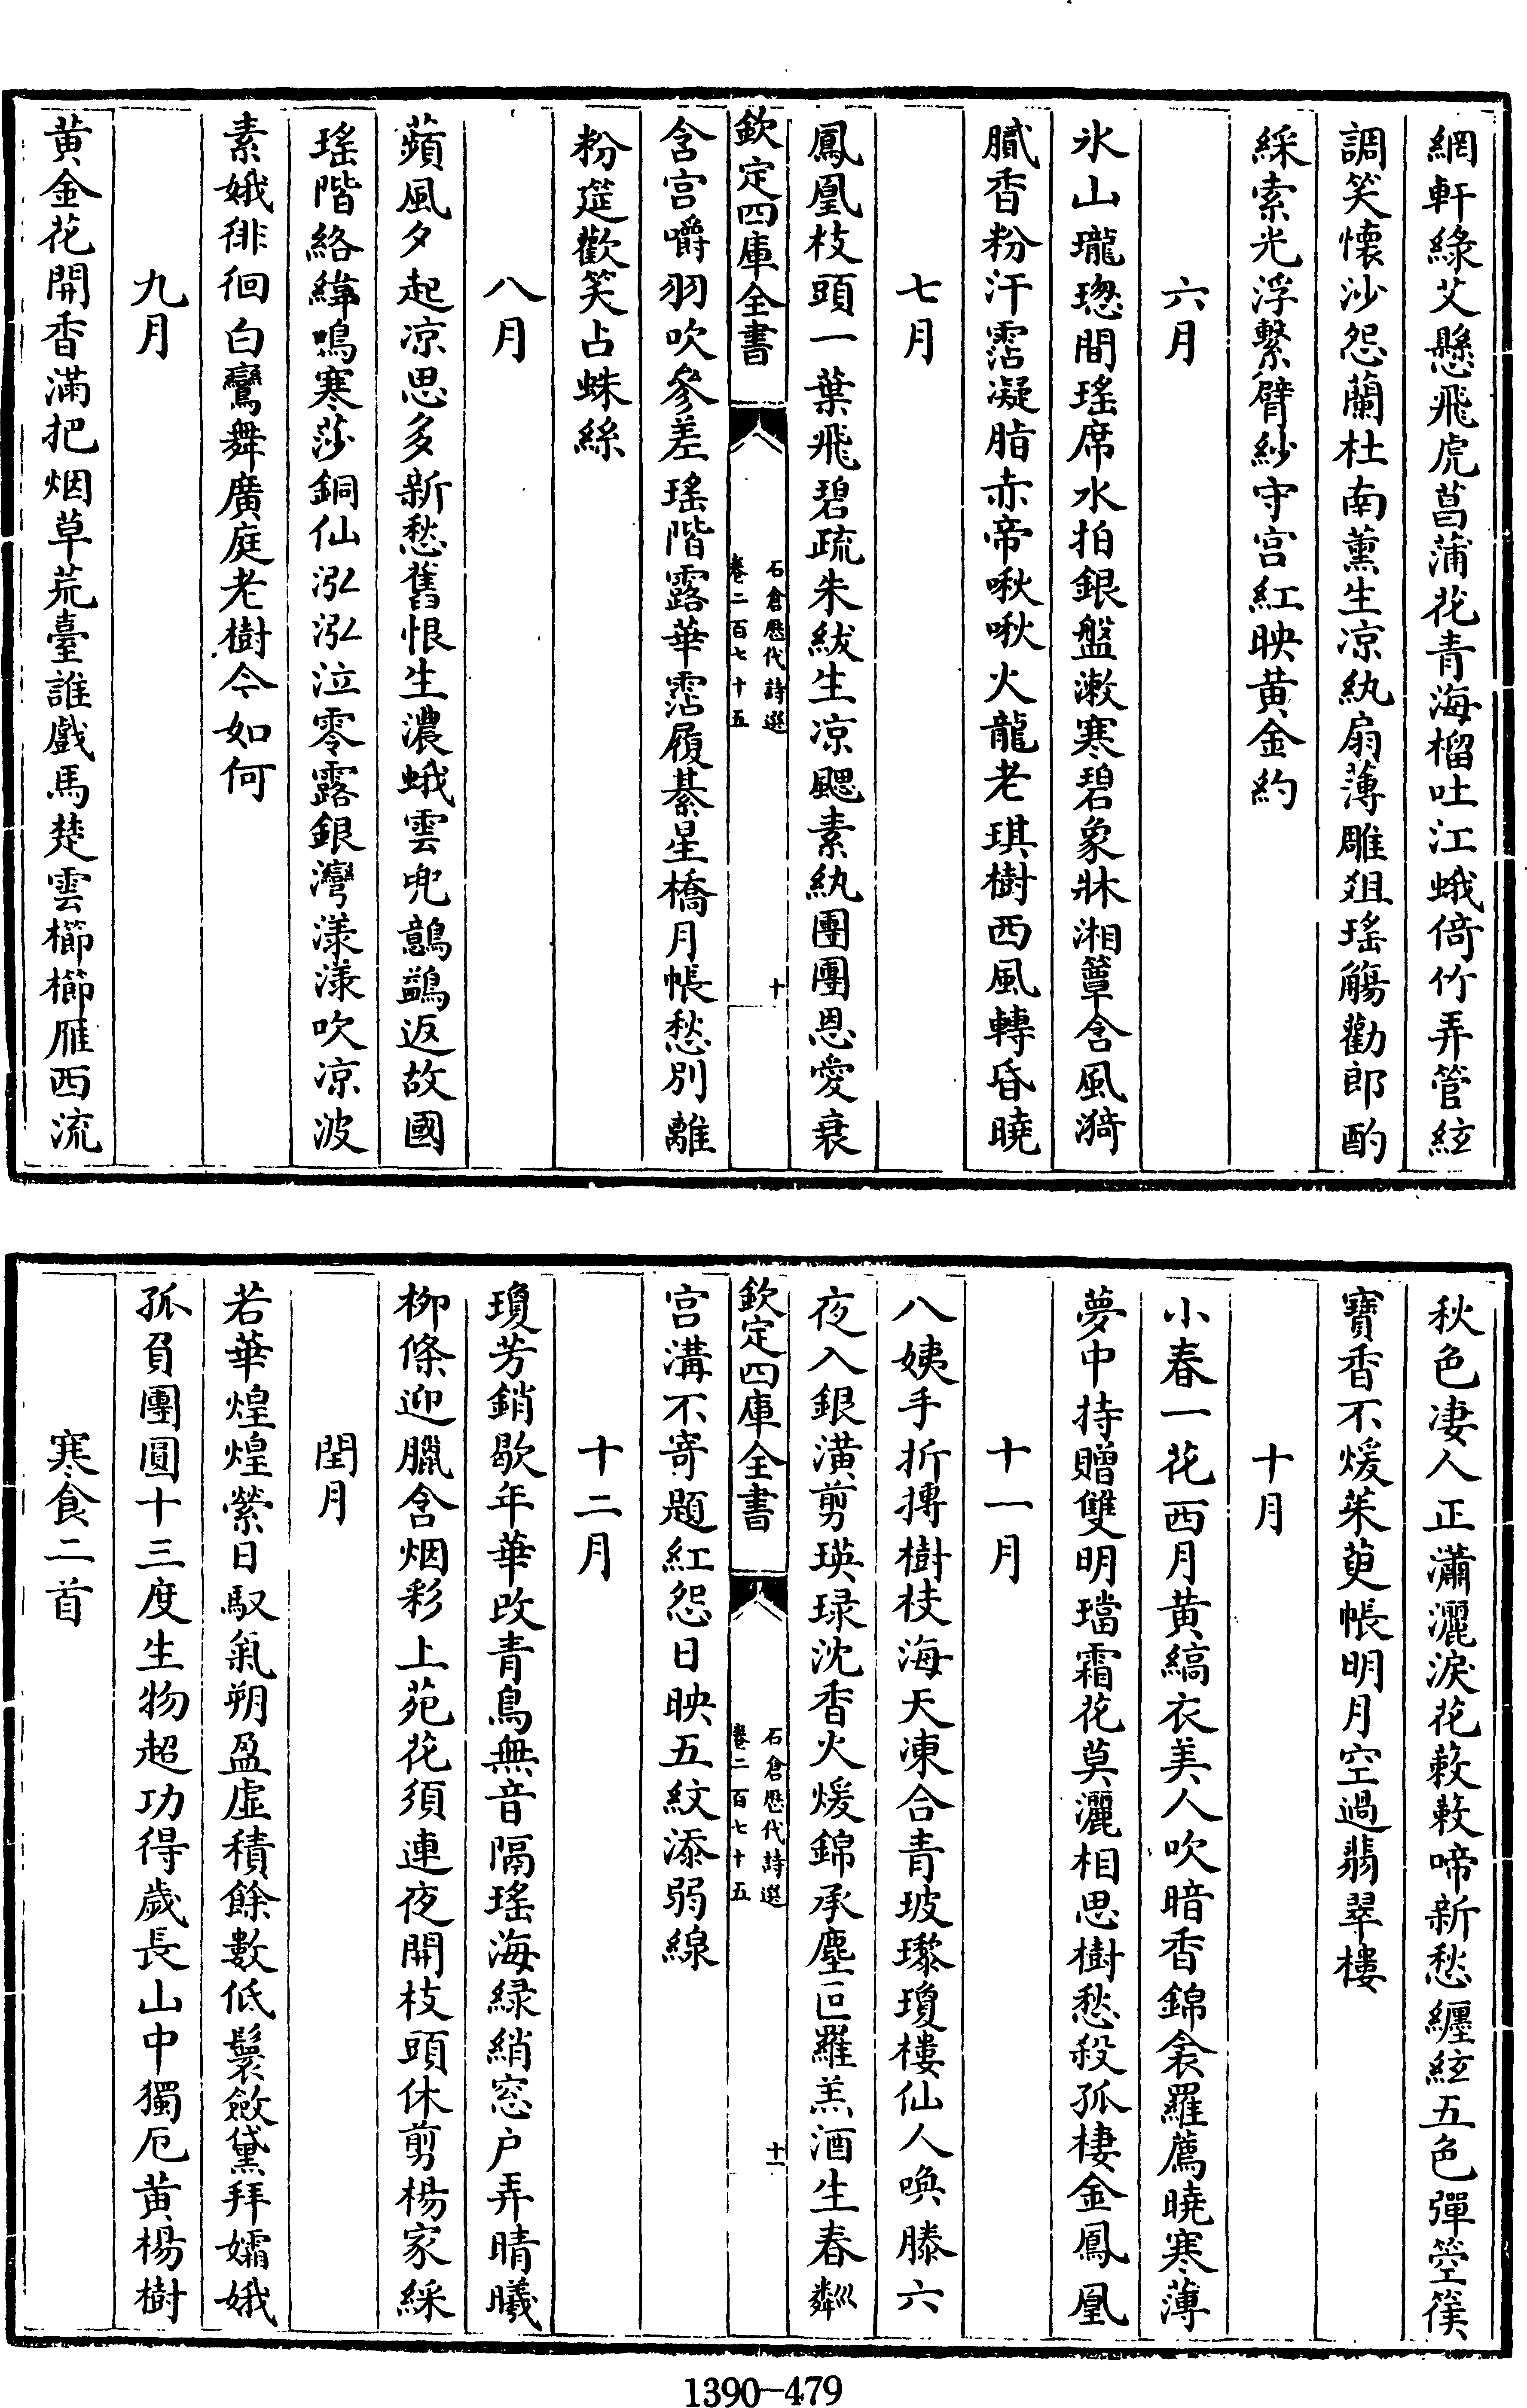 網軒綠艾懸飛虎菖蒲花青海榴吐江蛾倚竹弄管絃
調笑懷沙怨蘭杜南薰生凉紈扇薄雕俎瑤觴勸郎酌
綵索光浮繫臂紗守宫紅映黄金約
六月
氷山瓏璁間瑤席水拍銀盤漱寒碧象牀湘簟含風漪
膩香粉汗霑凝脂赤帝啾啾火龍老琪樹西風轉昏曉
七月
鳳凰枝頭一葉飛碧疏朱紱生凉颸素紈團團恩愛衰
欽定四庫全書
石倉歷代詩選
卷二百七十五
十
含宫嚼羽吹參差瑤階露華霑履綦星橋月帳愁別離
粉筵歡笑占蛛絲
八月
蘋風夕起凉思多新愁舊恨生濃蛾雲兜鷾鷁返故國
瑤階絡緯鳴寒莎銅仙泓泓泣零露銀灣漾漾吹凉波
素娥徘徊白鸞舞廣庭老樹今如何
九月
黄金花開香滿把烟草荒臺誰戲馬楚雲櫛櫛雁西流
秋色凄人正瀟灑淚花蔌蔌啼新愁纒絃五色彈箜篌
寶香不煖茱萸帳明月空過翡翠樓
十月
小春一花西月黄縞衣美人吹暗香錦衾羅薦曉寒薄
夢中持贈雙明璫霜花莫灑相思樹愁殺孤棲金鳳凰
十一月
八姨手折摶樹枝海天凍合青玻瓈瓊樓仙人喚滕六
夜入銀潢剪瑛琭沈香火煖錦承塵叵羅羔酒生春粼
欽定四庫全書
石倉歷代詩選
卷二百七十五
十一
宫溝不寄題紅怨日映五紋添弱線
十二月
瓊芳銷歇年華改青鳥無音隔瑤海緑綃窓户弄晴曦
柳條迎臘含烟彩上苑花須連夜開枝頭休剪楊家綵
閏月
若華煌煌縈日馭氣朔盈虛積餘數低鬟斂黛拜孀娥
孤負團圓十三度生物超功得歲長山中獨厄黄楊樹
寒食二首
1390-479